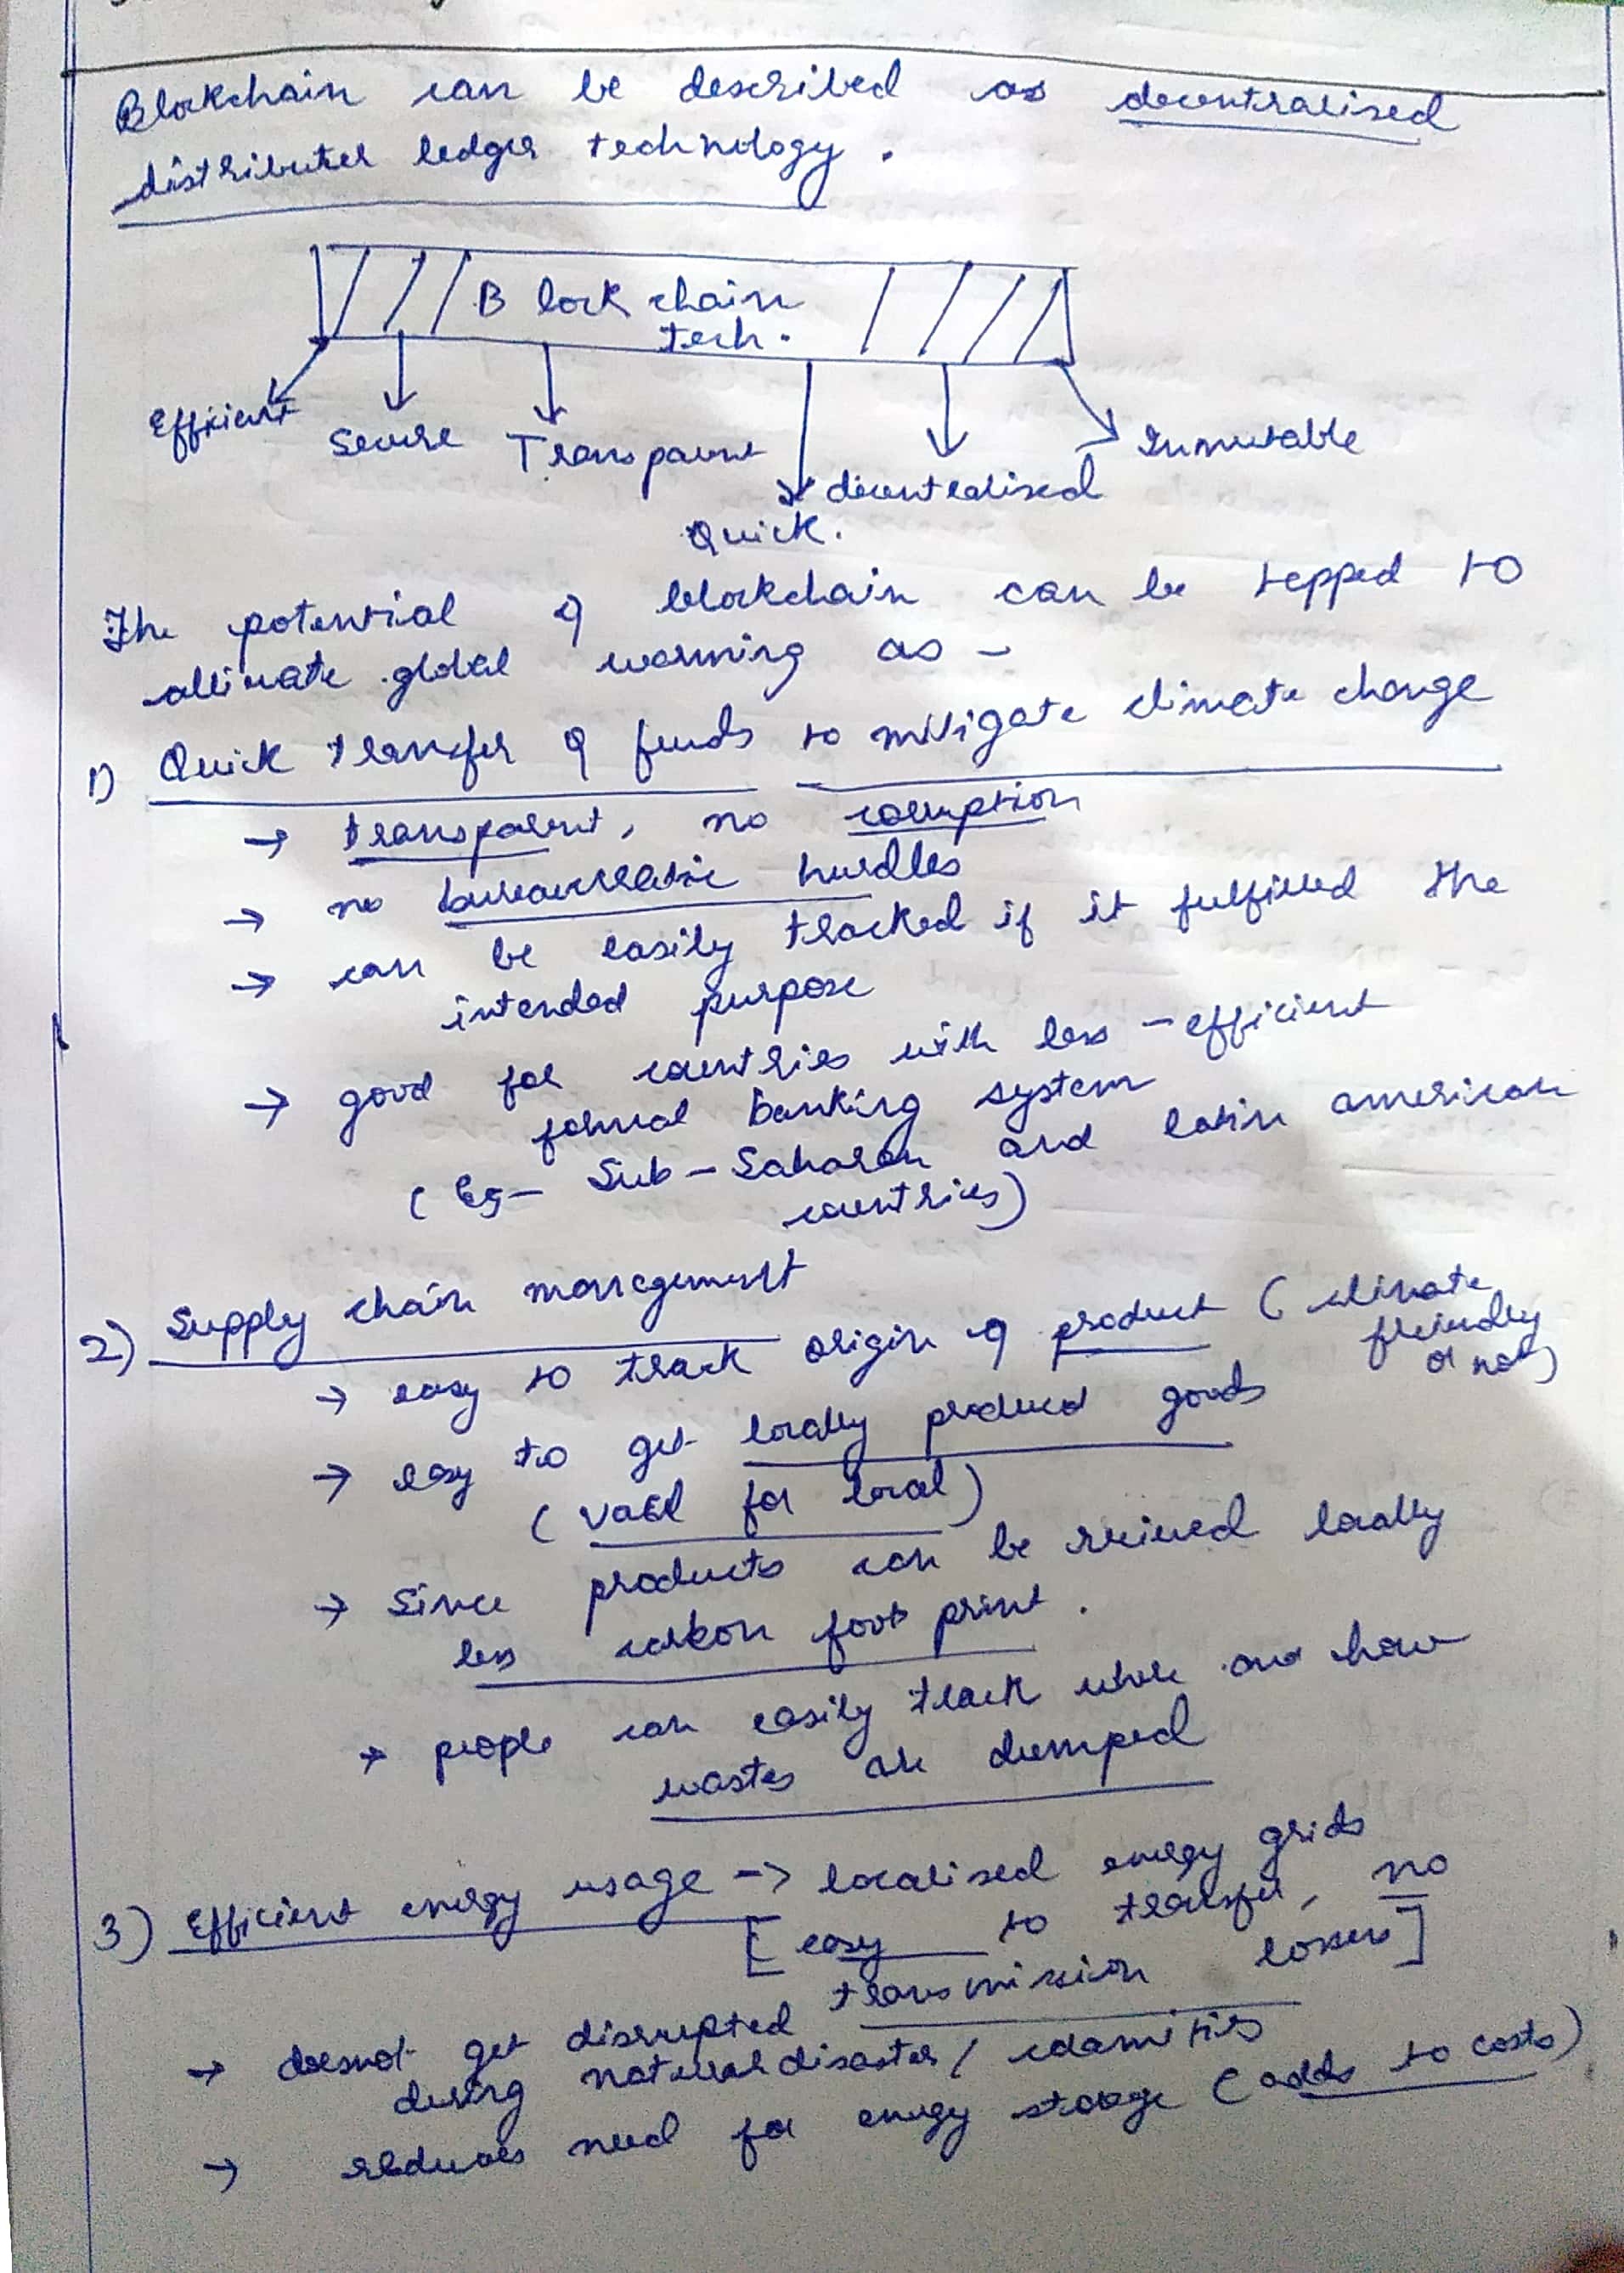 Blockchain can be described as decentralised
distributed ledger technology.
Block chain
tech.
Efficient
Secure
Transparent
Quick.
decentralised
Immutable
The potential of blockchain can be tapped to
alleviate global warming as -
1) Quick transfer of funds to mitigate climate change
→ transparent, no corruption
→ no bureaucratic hurdles
→ can be easily tracked if it fulfilled the
intended purpose
→ good for countries with less-efficient
formal banking system
(Eg- Sub-Saharan and latin american
countries)
2) Supply chain management
→ easy to track origin of product (climate
friendly
or not)
→ easy to get locally produced goods
(vocal for local)
→ Since products can be recieved locally
less carbon foot print.
→ people can easily track where and how
wastes are dumped
3) Efficient energy usage → localised energy grids
[easy to transfer, no
transmission losses]
→ doesnot get disrupted
during natural disaster / calamities
→ reduces need for energy storage (adds to costs)